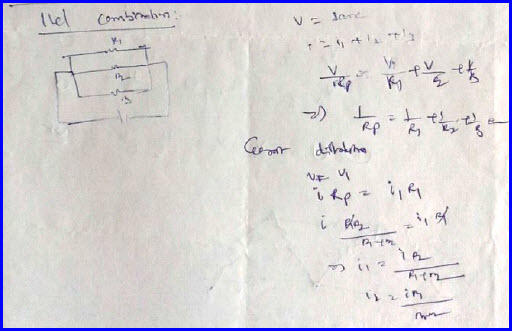 11el combination:
R1
R2
V = Same
i = i1 + i2 + i3
V/Rp = V/R1 + V/R2 + V/R3
=> 1/Rp = 1/R1 + 1/R2 + 1/R3
V = V1
i Rp = i1 R1
i R1R2/R1+R2 = i1 R1
=> i1 = i R2/R1+R2
i2 = i R1/R1+R2